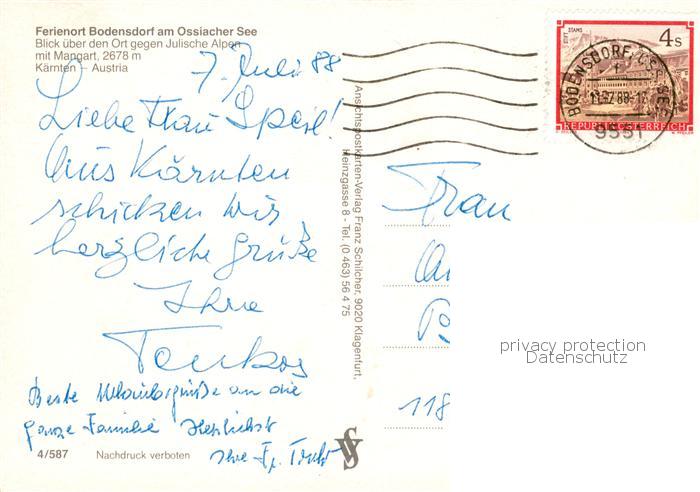 Ferienort Bodensdorf am Ossiacher See
Blick über den Ort gegen Julische Alpen
mit Mangart, 2678 m
Kärnten – Austria
7. Juli 88
Liebe Frau
Aus Kärnten
schicken wir
herzliche Grüße
Ihre
Beste Urlaubsgrüße an die
ganze Familie Herzlichst
Ihre Fr.
4/587 Nachdruck verboten
Ansichtspostkarten-Verlag Franz Schilcher, 9020 Klagenfurt,
Heinzgasse 8 - Tel. (0 463) 56 4 75
STIFT STAMS
4 S
REPUBLIK ÖSTERREICH
BODENSDORF
9551
Frau
118
privacy protection
Datenschutz